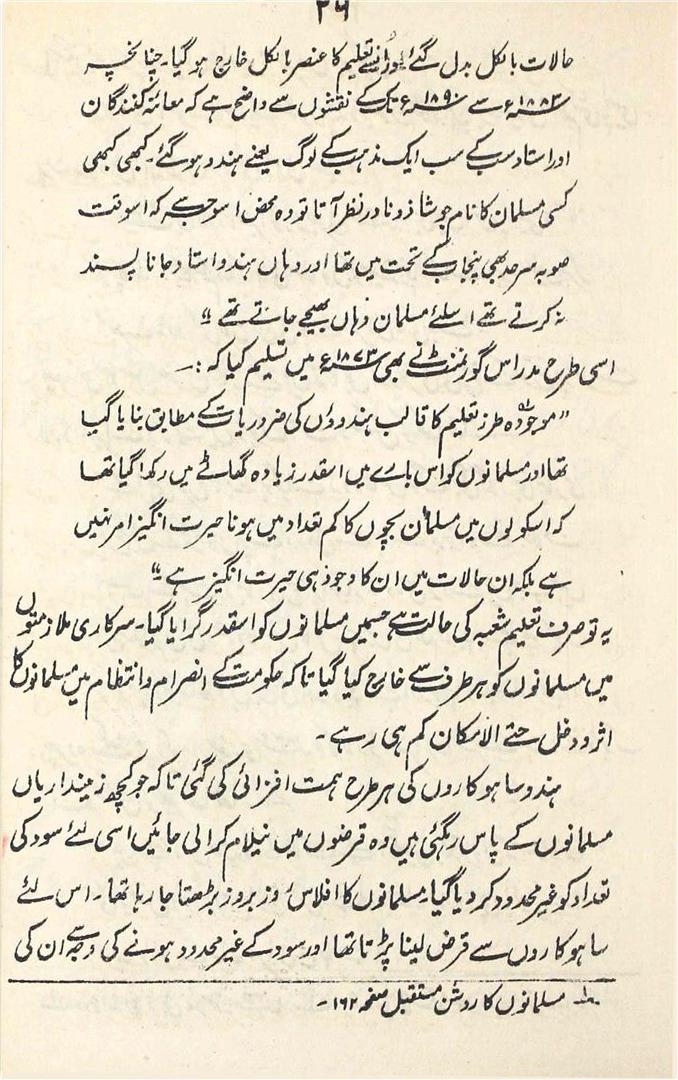 ۳۶
حالات بالکل بدل گئے اور اُنسے تعلیم کا عنصر بالکل خارج ہو گیا۔ چنانچہ
۱۸۸۳ء سے ۱۸۹۰ء تک کے نقشوں سے واضح ہے کہ معائنہ کنندگان
اور استاد سب کے سب ایک مذہب کے لوگ یعنے ہندو ہو گئے۔ کبھی کبھی
کسی مسلمان کا نام جو شاذ و نادر نظر آتا تو وہ محض اسوجہ سے کہ اسوقت
صوبہ سرحد بھی پنجاب کے تحت میں تھا اور وہاں ہندو استاد جانا پسند
نہ کرتے تھے اسلئے مسلمان وہاں بھیجے جاتے تھے ؛؛
اسی طرح مدراس گورنمنٹ نے بھی ۱۸۷۳ء میں تسلیم کیا کہ :۔
"موجودہ طرز تعلیم کا قالب ہندوؤں کی ضروریات کے مطابق بنایا گیا
تھا اور مسلمانوں کو اس بارے میں اسقدر زیادہ گھاٹے میں رکھا گیا تھا
کہ اسکولوں میں مسلمان بچوں کا کم تعداد میں ہونا حیرت انگیز امر نہیں
ہے بلکہ ان حالات میں ان کا وجود ہی حیرت انگیز ہے "
یہ تو صرف تعلیم شعبہ کی حالت ہے جسمیں مسلمانوں کو اسقدر گرایا گیا۔ سرکاری ملازمتوں
میں مسلمانوں کو ہر طرف سے خارج کیا گیا تاکہ حکومت کے انصرام و انتظام میں مسلمانوں کا
اثر و دخل حتے الامکان کم ہی رہے ۔
ہندو ساہوکاروں کی ہر طرح ہمت افزائی کی گئی تاکہ جو کچھ زمینداریاں
مسلمانوں کے پاس رہگئی ہیں وہ قرضوں میں نیلام کرالی جائیں اسی لئے سود کی
تعداد کو غیر محدود کر دیا گیا۔ مسلمانوں کا افلاس روز بروز بڑھتا جا رہا تھا۔ اس لئے
ساہوکاروں سے قرض لینا پڑتا تھا اور سود کے غیر محدود ہونے کی وجہ سے ان کی
ط مسلمانوں کا روشن مستقبل صفحہ ۱۶۲ ۔